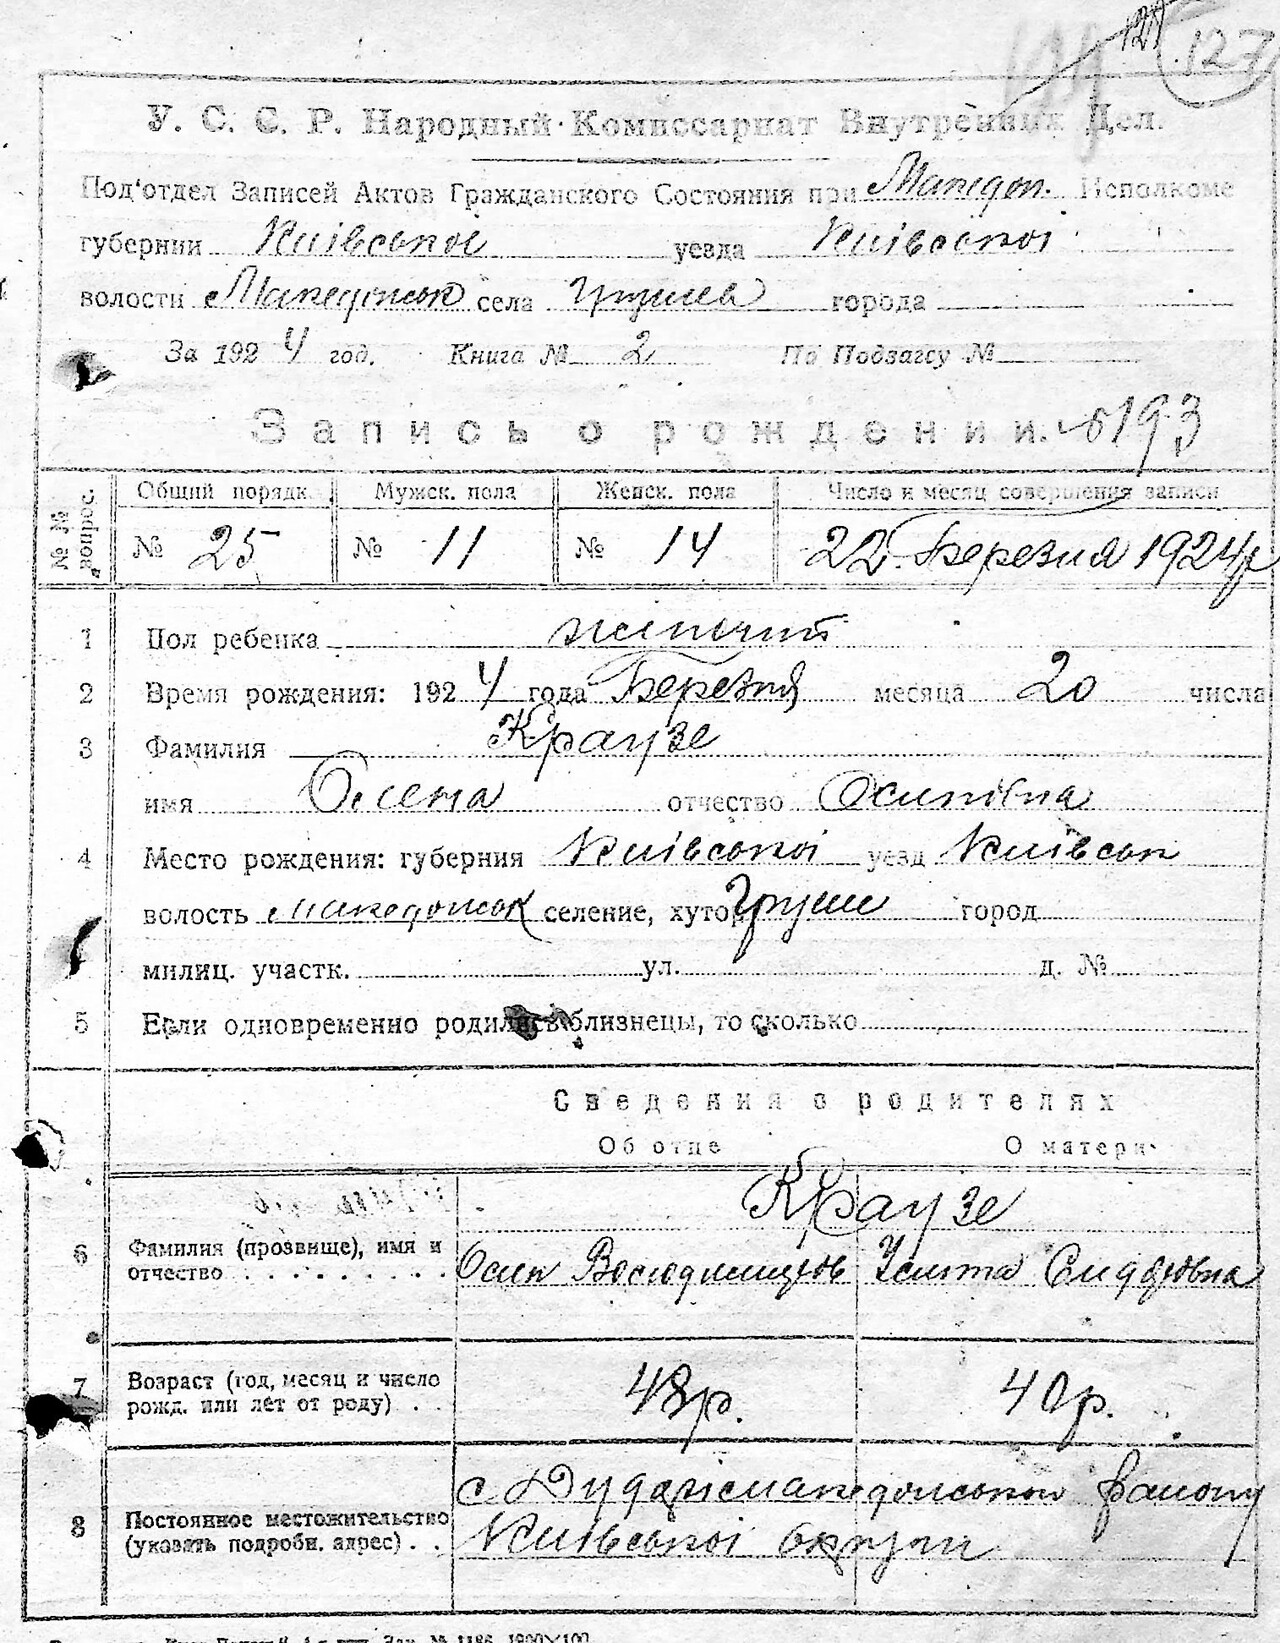 127
У. С. С. Р. Народный Комиссариат Внутренних Дел.
Под'отдел Записей Актов Гражданского Состояния при Македон. Исполкоме
губернии Київської уезда Київської
волости Македонськ села города
За 1924 год. Книга № 2 По Подзагсу №
Запись о рождении. 193
№ № вопрос. Общий порядк. Мужск. пола Женск. пола Число и месяц совершения записи
№ 25 № 11 № 14 22 Березня 1924 р
1 Пол ребенка жіночий
2 Время рождения: 1924 года Березня месяца 20 числа
3 Фамилия Краузе
имя Олена отчество Осипівна
4 Место рождения: губерния Київської уезд Київськ
волость Македонськ селение, хутор Груше город
милиц. участк. ул. д. №
5 Если одновременно родились близнецы, то сколько
Сведения о родителях
Об отце О матери
Краузе
6 Фамилия (прозвище), имя и
отчество . . . . . . . . . Осип Улита
7 Возраст (год, месяц и число
рожд. или лет от роду) . . 48р. 40р.
с македонськой району
8 Постоянное местожительство
(указать подробн. адрес) . . Київської округи